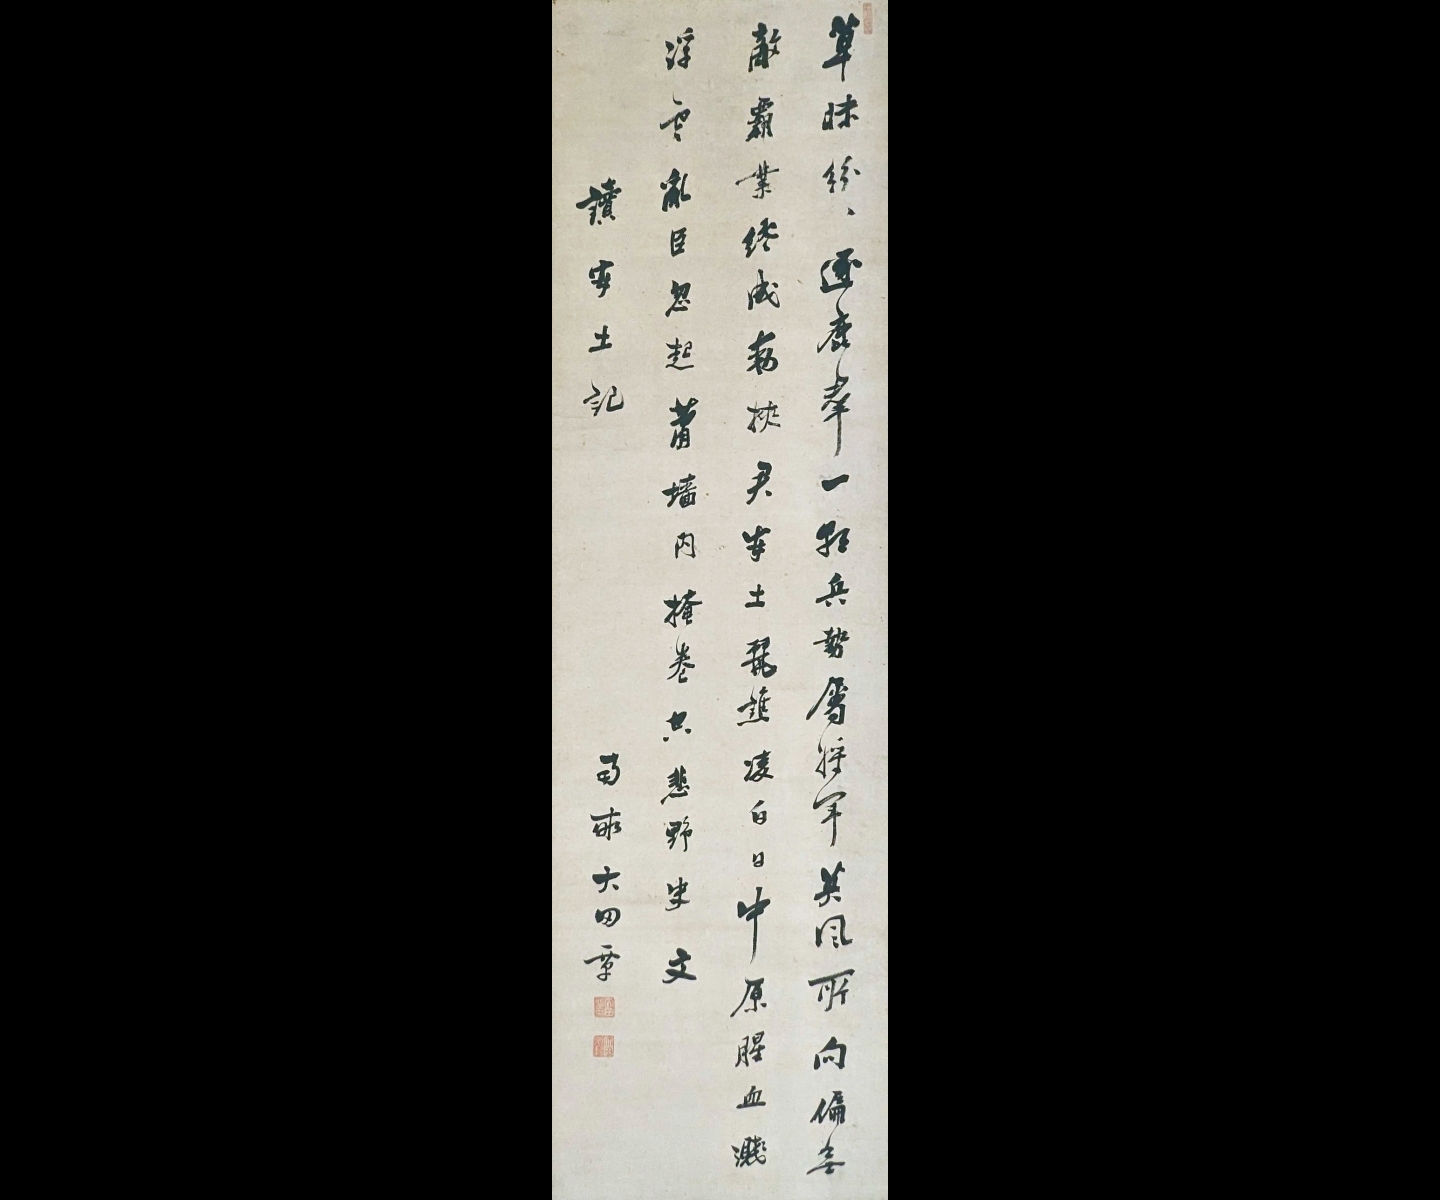 草昧紛〻逐鹿群一兵勢屬將軍英風所向偏無
敵霸業終成挾君安土麗譙凌白日中原腥血濺
浮雲亂臣忽起蕭墻內掩卷只悲野史文
讀安土記
南畝大田覃